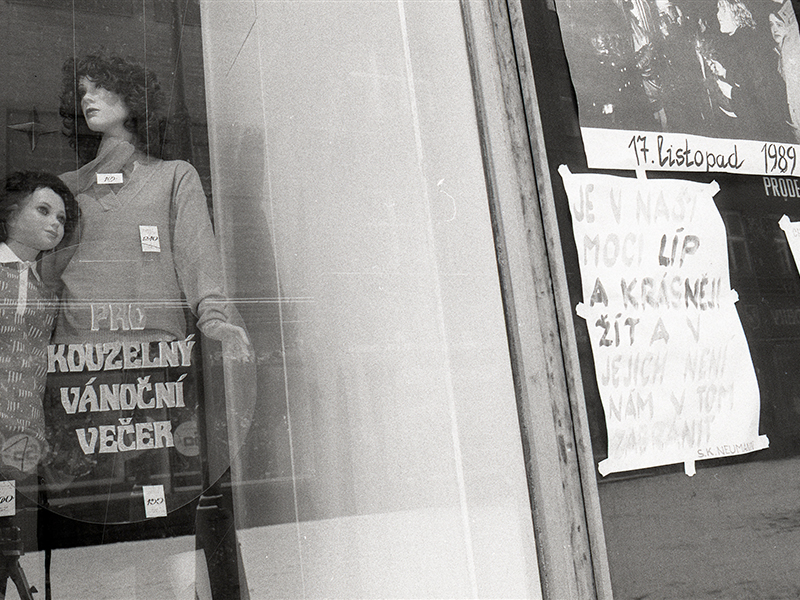 PRO
KOUZELNÝ
VÁNOČNÍ
VEČER
17. listopad 1989
PRODE
JE V NAŠÍ
MOCI LÍP
A KRÁSNĚJI
ŽÍT A V
JEJICH NENÍ
NÁM V TOM
ZABRÁNIT
S.K. NEUMANN